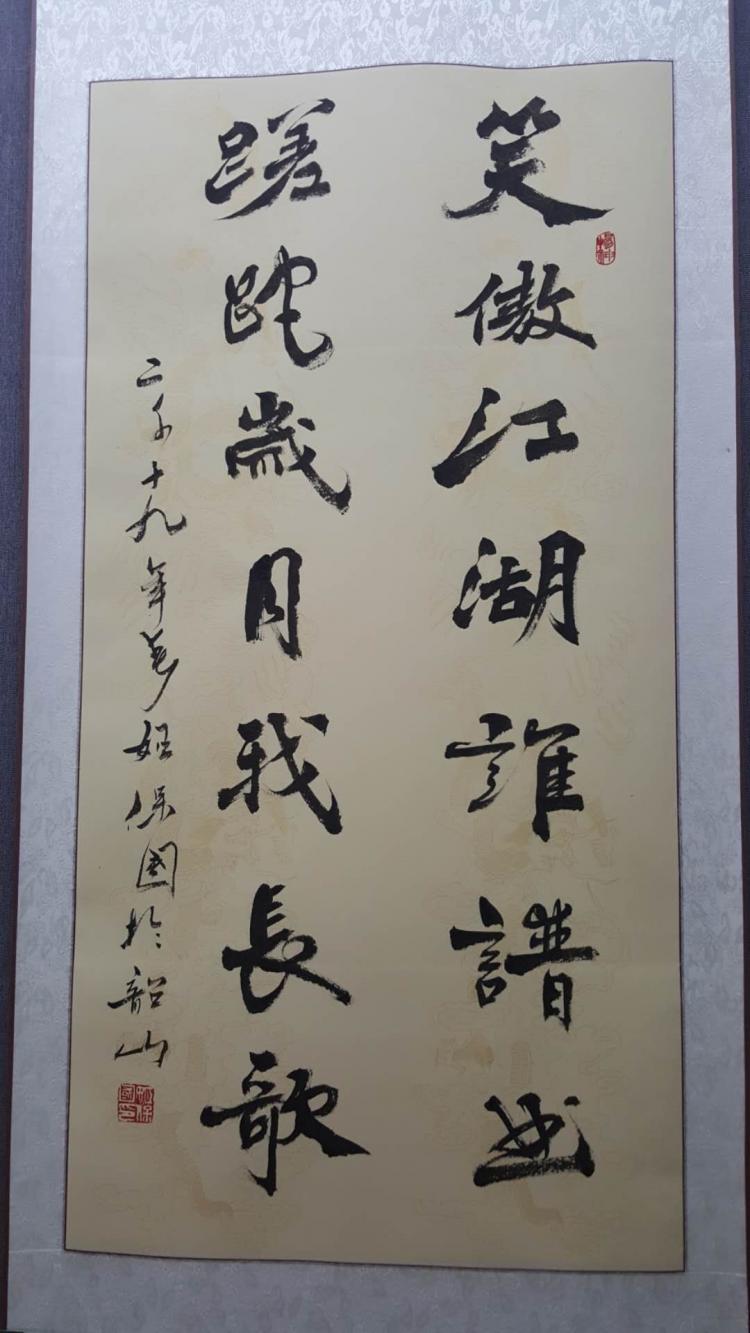 笑傲江湖誰譜曲
蹉跎歲月我長歌
二千十九年姬保國於韶山